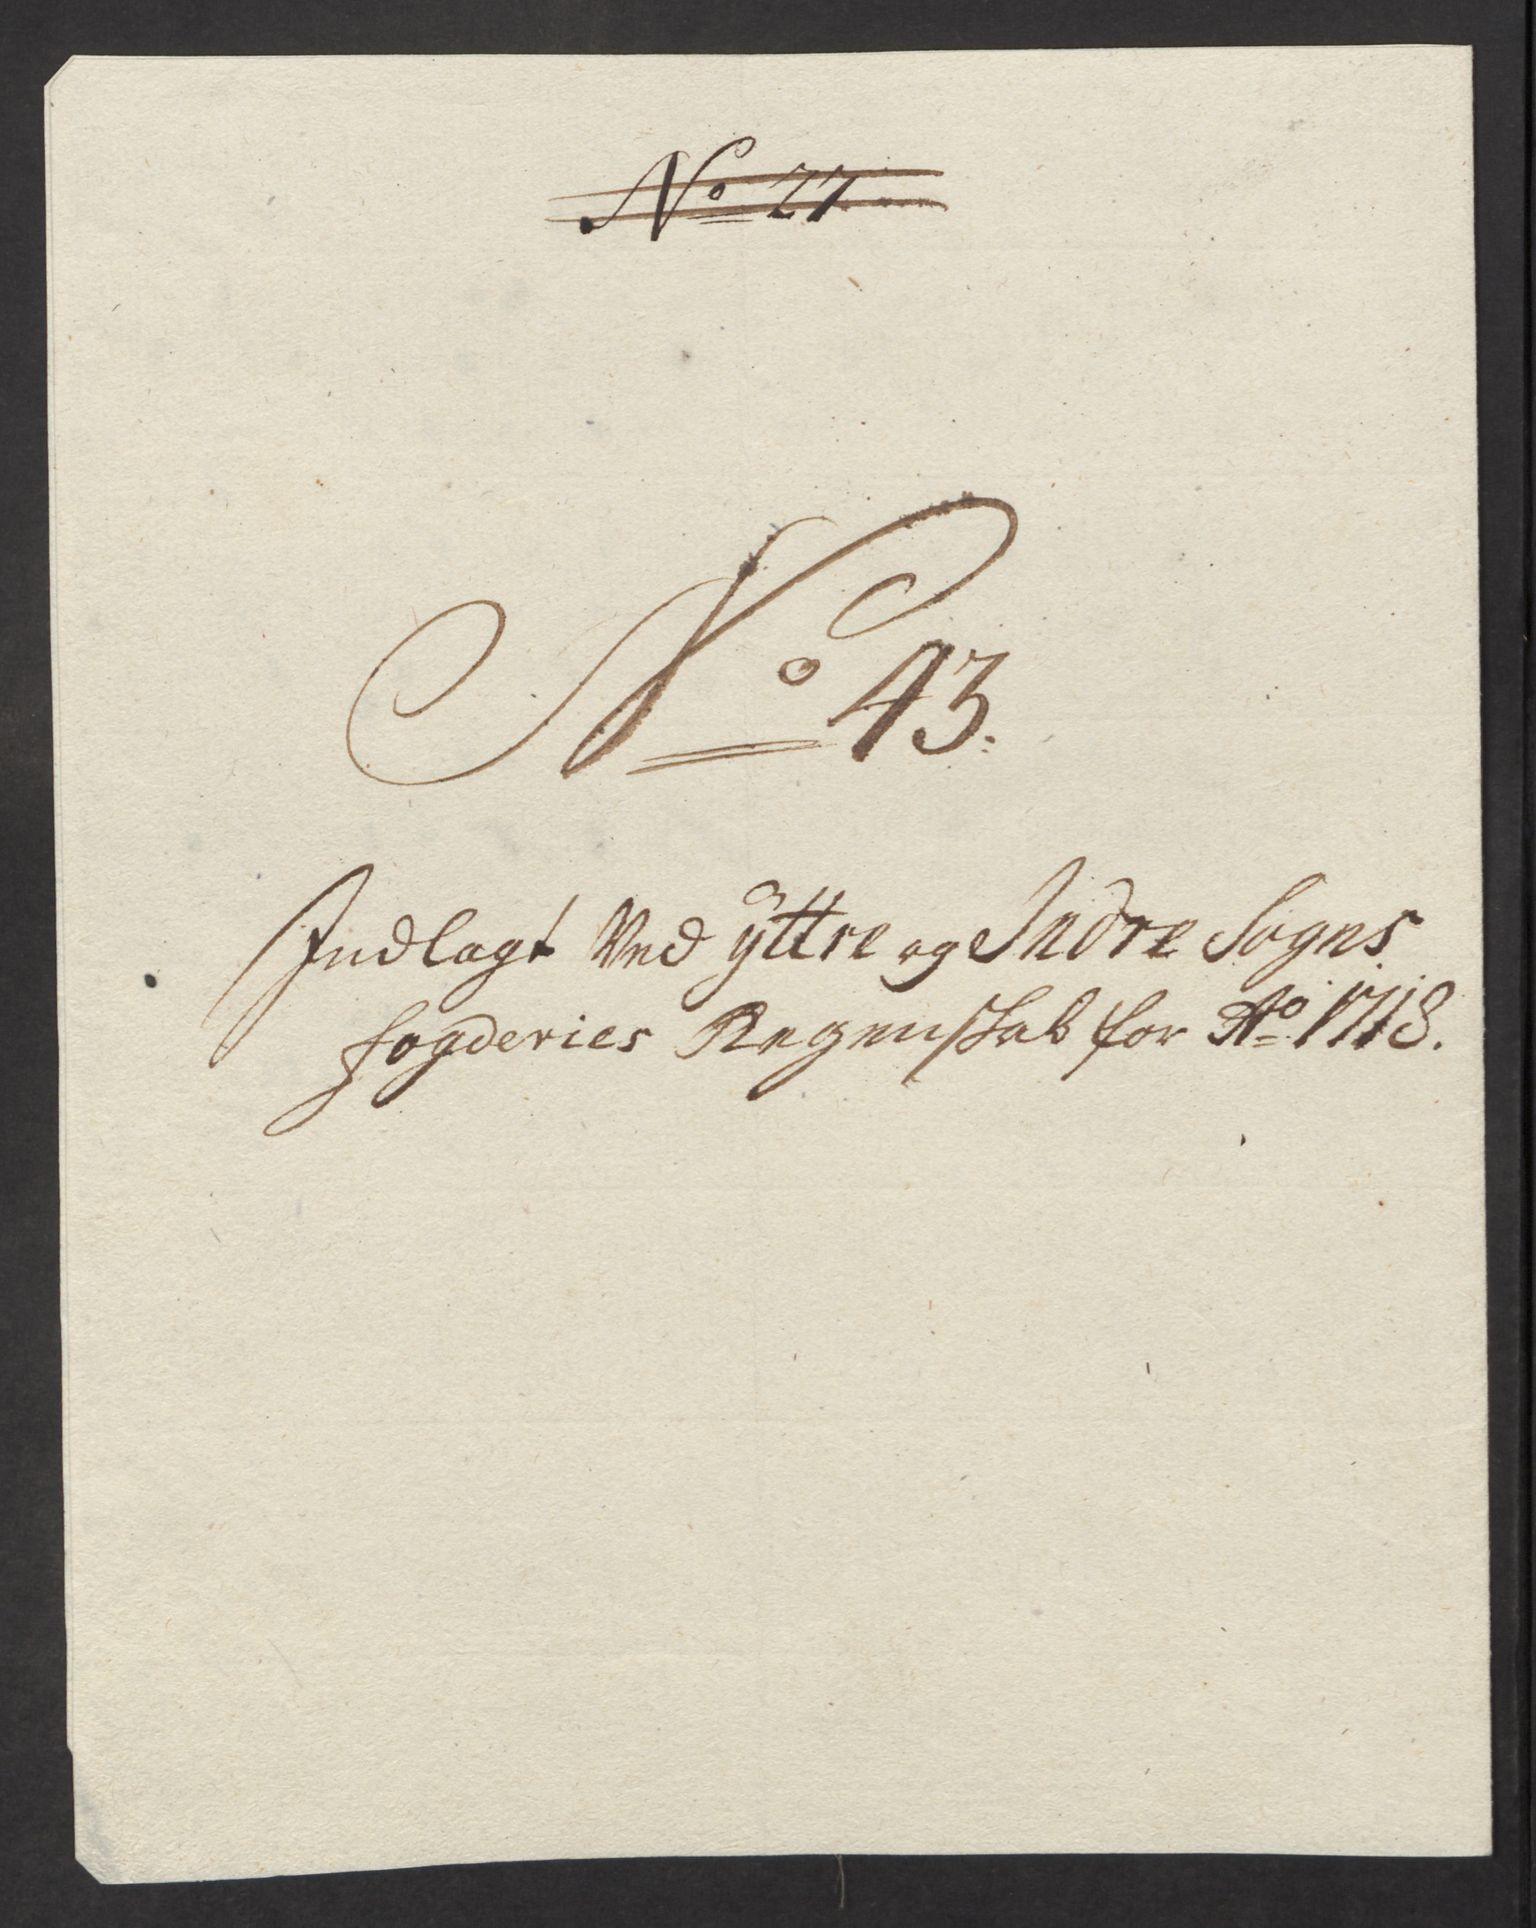 No 27
No 43.
Indlagt Ved Yttre og Indre Sogns
fogderies Regenskab for Ao 1718.